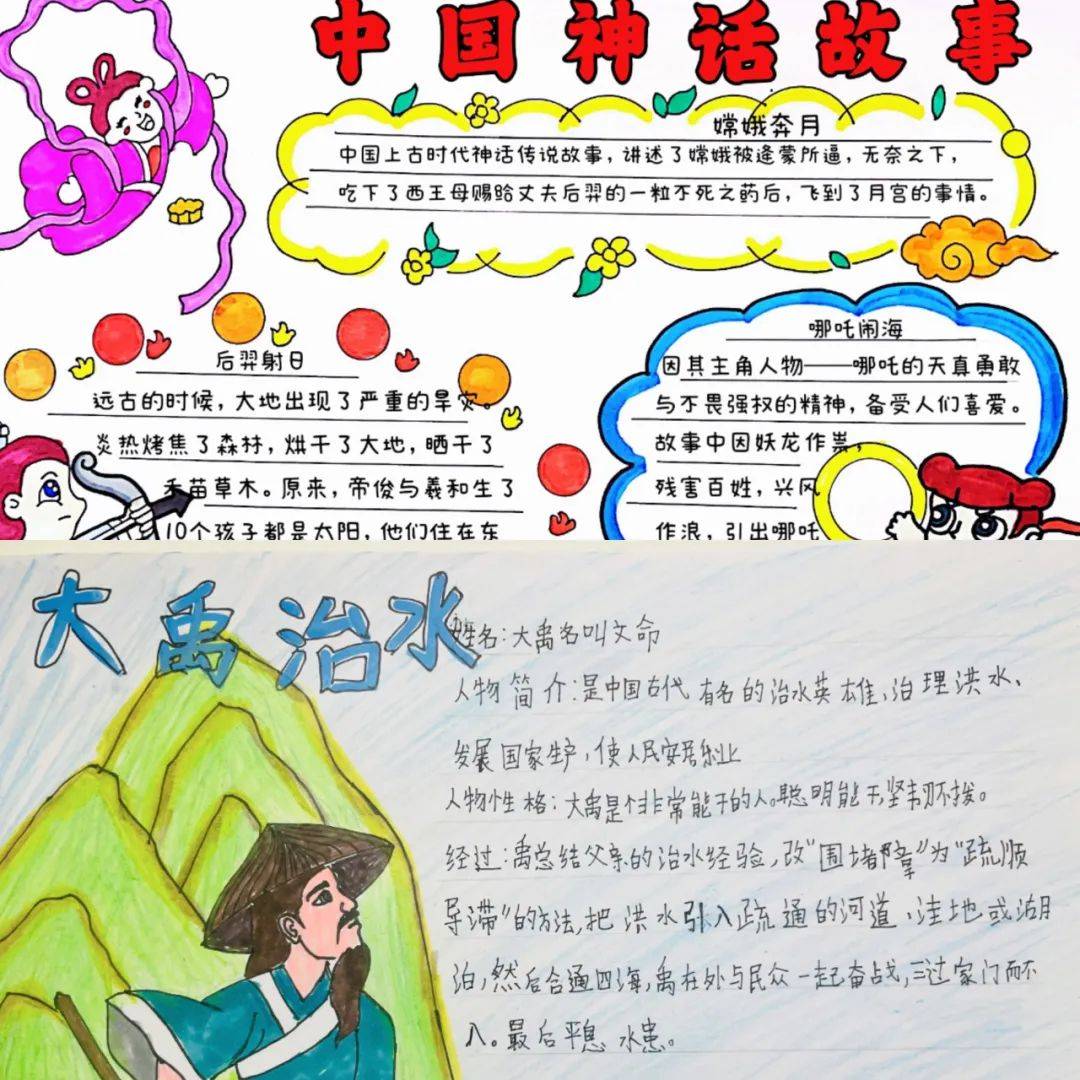 中国神话故事
嫦娥奔月
中国上古时代神话传说故事，讲述了嫦娥被逢蒙所逼，无奈之下，
吃下了西王母赐给丈夫后羿的一粒不死之药后，飞到了月宫的事情。
后羿射日
远古的时候，大地出现了严重的旱灾。
炎热烤焦了森林，烘干了大地，晒干了
禾苗草木。原来，帝俊与羲和生了
10个孩子都是太阳，他们住在东
哪吒闹海
因其主角人物——哪吒的天真勇敢
与不畏强权的精神，备受人们喜爱。
故事中因妖龙作祟，
残害百姓，兴风
作浪，引出哪吒
大禹治水
姓名：大禹名叫文命
人物简介：是中国古代有名的治水英雄，治理洪水、
发展国家生产，使人民安居乐业
人物性格：大禹是个非常能干的人。聪明能干，坚韧不拨。
经过：禹总结父亲的治水经验，改"围堵障"为"疏顺
导滞"的方法，把洪水引入疏通的河道、洼地或湖
泊，然后合通四海，禹在外与民众一起奋战，三过家门而不
入。最后平息水患。